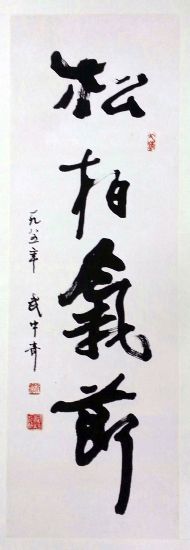 松柏氣節
一九八五年
武中奇